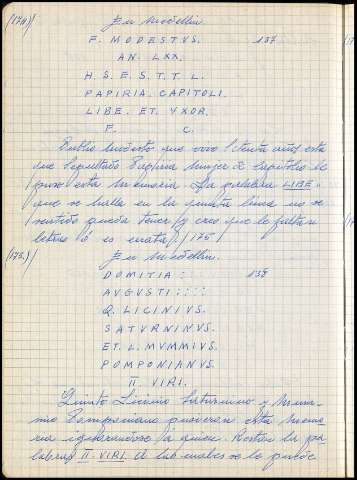 (174) En Medellin.
F. MODESTVS. 137
AN. LXX.
H. S. E. S. T. T. L.
PAPIRIA. CAPITOLI.
LIBE. ET. VXOR.
F. C.
Publio Modesto que vivo setenta años esta
sepultado Papiria muger de Capitolio le
puso esta memoria La palabra LIBE.
que se halla en la quinta linea no se
sentido pueda tener y creo que le faltan
letras ó es errata /175/
En Medellin.
DOMITIA :: 138
AVGVSTI ::::
Q. LICINIVS.
SATVRNINVS.
ET. L. MVMMIVS.
POMPONIANVS.
II. VIRI.
Quinto Licinio Saturnino y Mum-
mio Pomponiano pusieron esta memo
ria ignorandose a quien. Restan las pa
labras II. VIRI. a las cuales se le puede